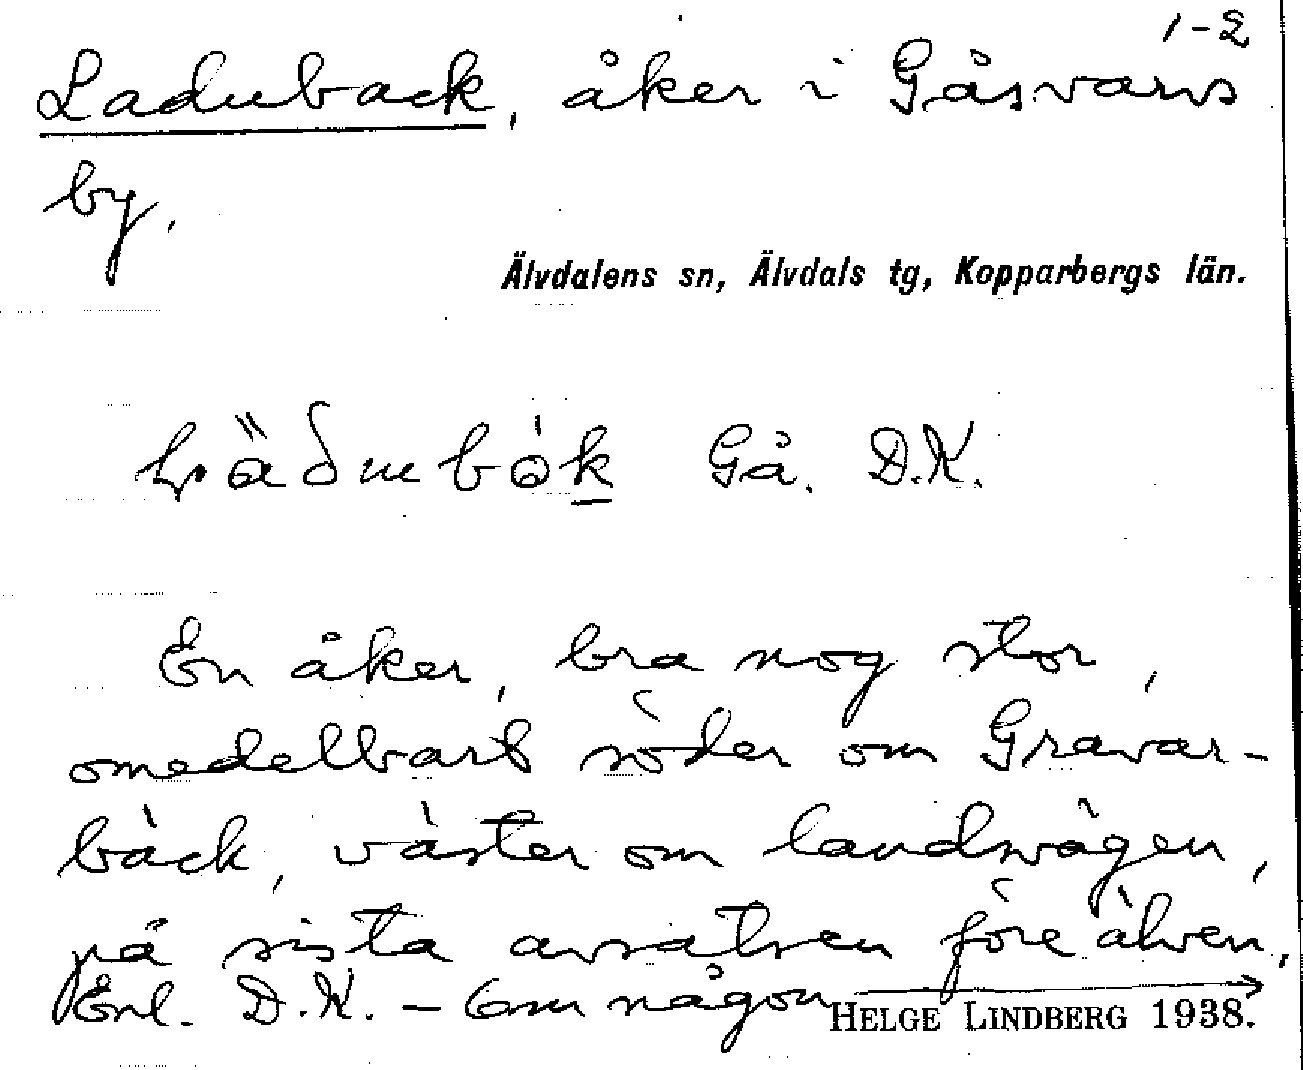 1-2
Laduback, åker i Gåsvarvs
by.
Älvdalens sn, Älvdals tg, Kopparbergs län.
Gå. D.K.
En åker, bra nog stor,
omedelbart söder om Gravar-
bäck, väster om landsvägen,
på sista avsatsen före älven.
Enl. D.K. – Om någon
HELGE LINDBERG 1938.